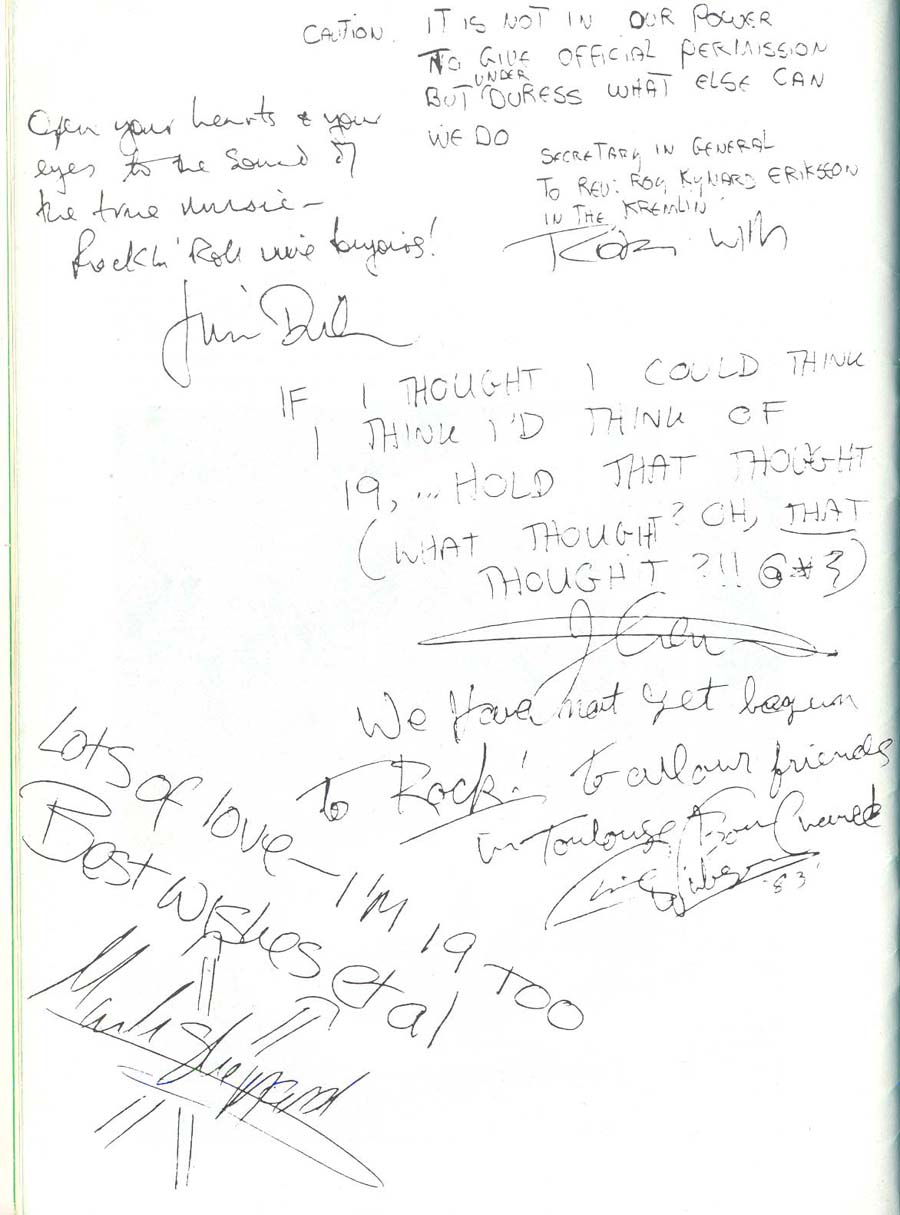 CAUTION. IT IS NOT IN OUR POWER
TO GIVE OFFICIAL PERMISSION
BUT UNDER DURESS WHAT ELSE CAN
WE DO
SECRETARY IN GENERAL
TO REV: ROG KYNARD ERIKSEON
IN THE KREMLIN
Open your hearts & your
eyes to the sound of
the true music –
Rock'n' Roll
IF I THOUGHT I COULD THINK
I THINK I'D THINK OF
19, ... HOLD THAT THOUGHT
(WHAT THOUGHT? OH, THAT
THOUGHT ?!! @*?)
We Have not yet begun
To Rock! to all our friends
in Toulouse
'83'
Lots of love – I'M 19 TOO
Best wishes et al
Mark Sheppard